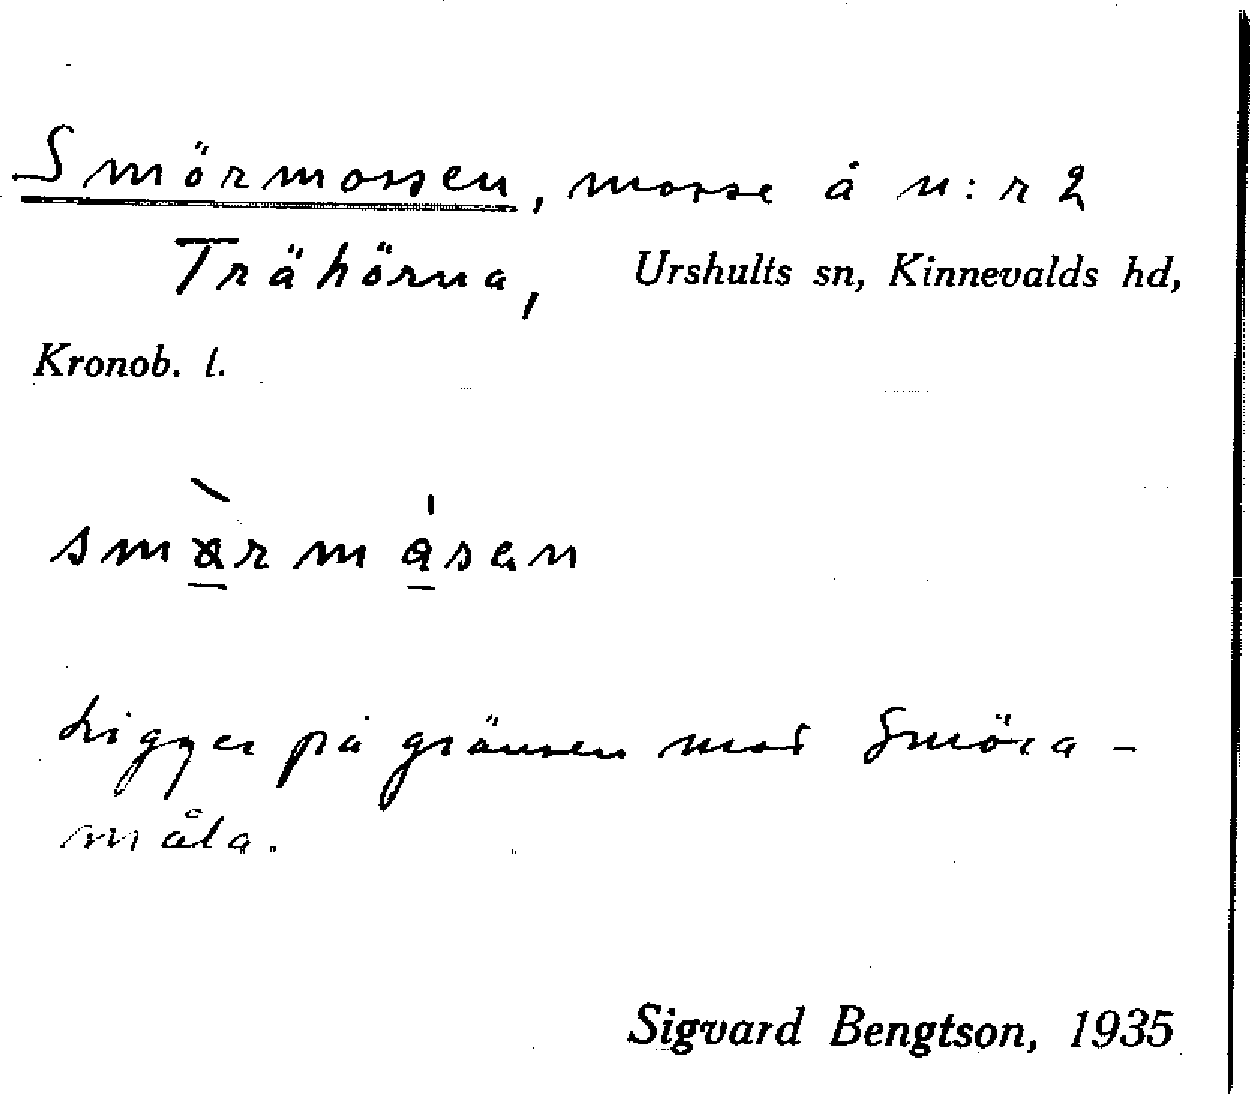 Smörmossen, mosse å n:r 2
Trähörna, Urshults sn, Kinnevalds hd,
Kronob. l.
Ligger på gränsen mot Smöra-
måla.
Sigvard Bengtson, 1935